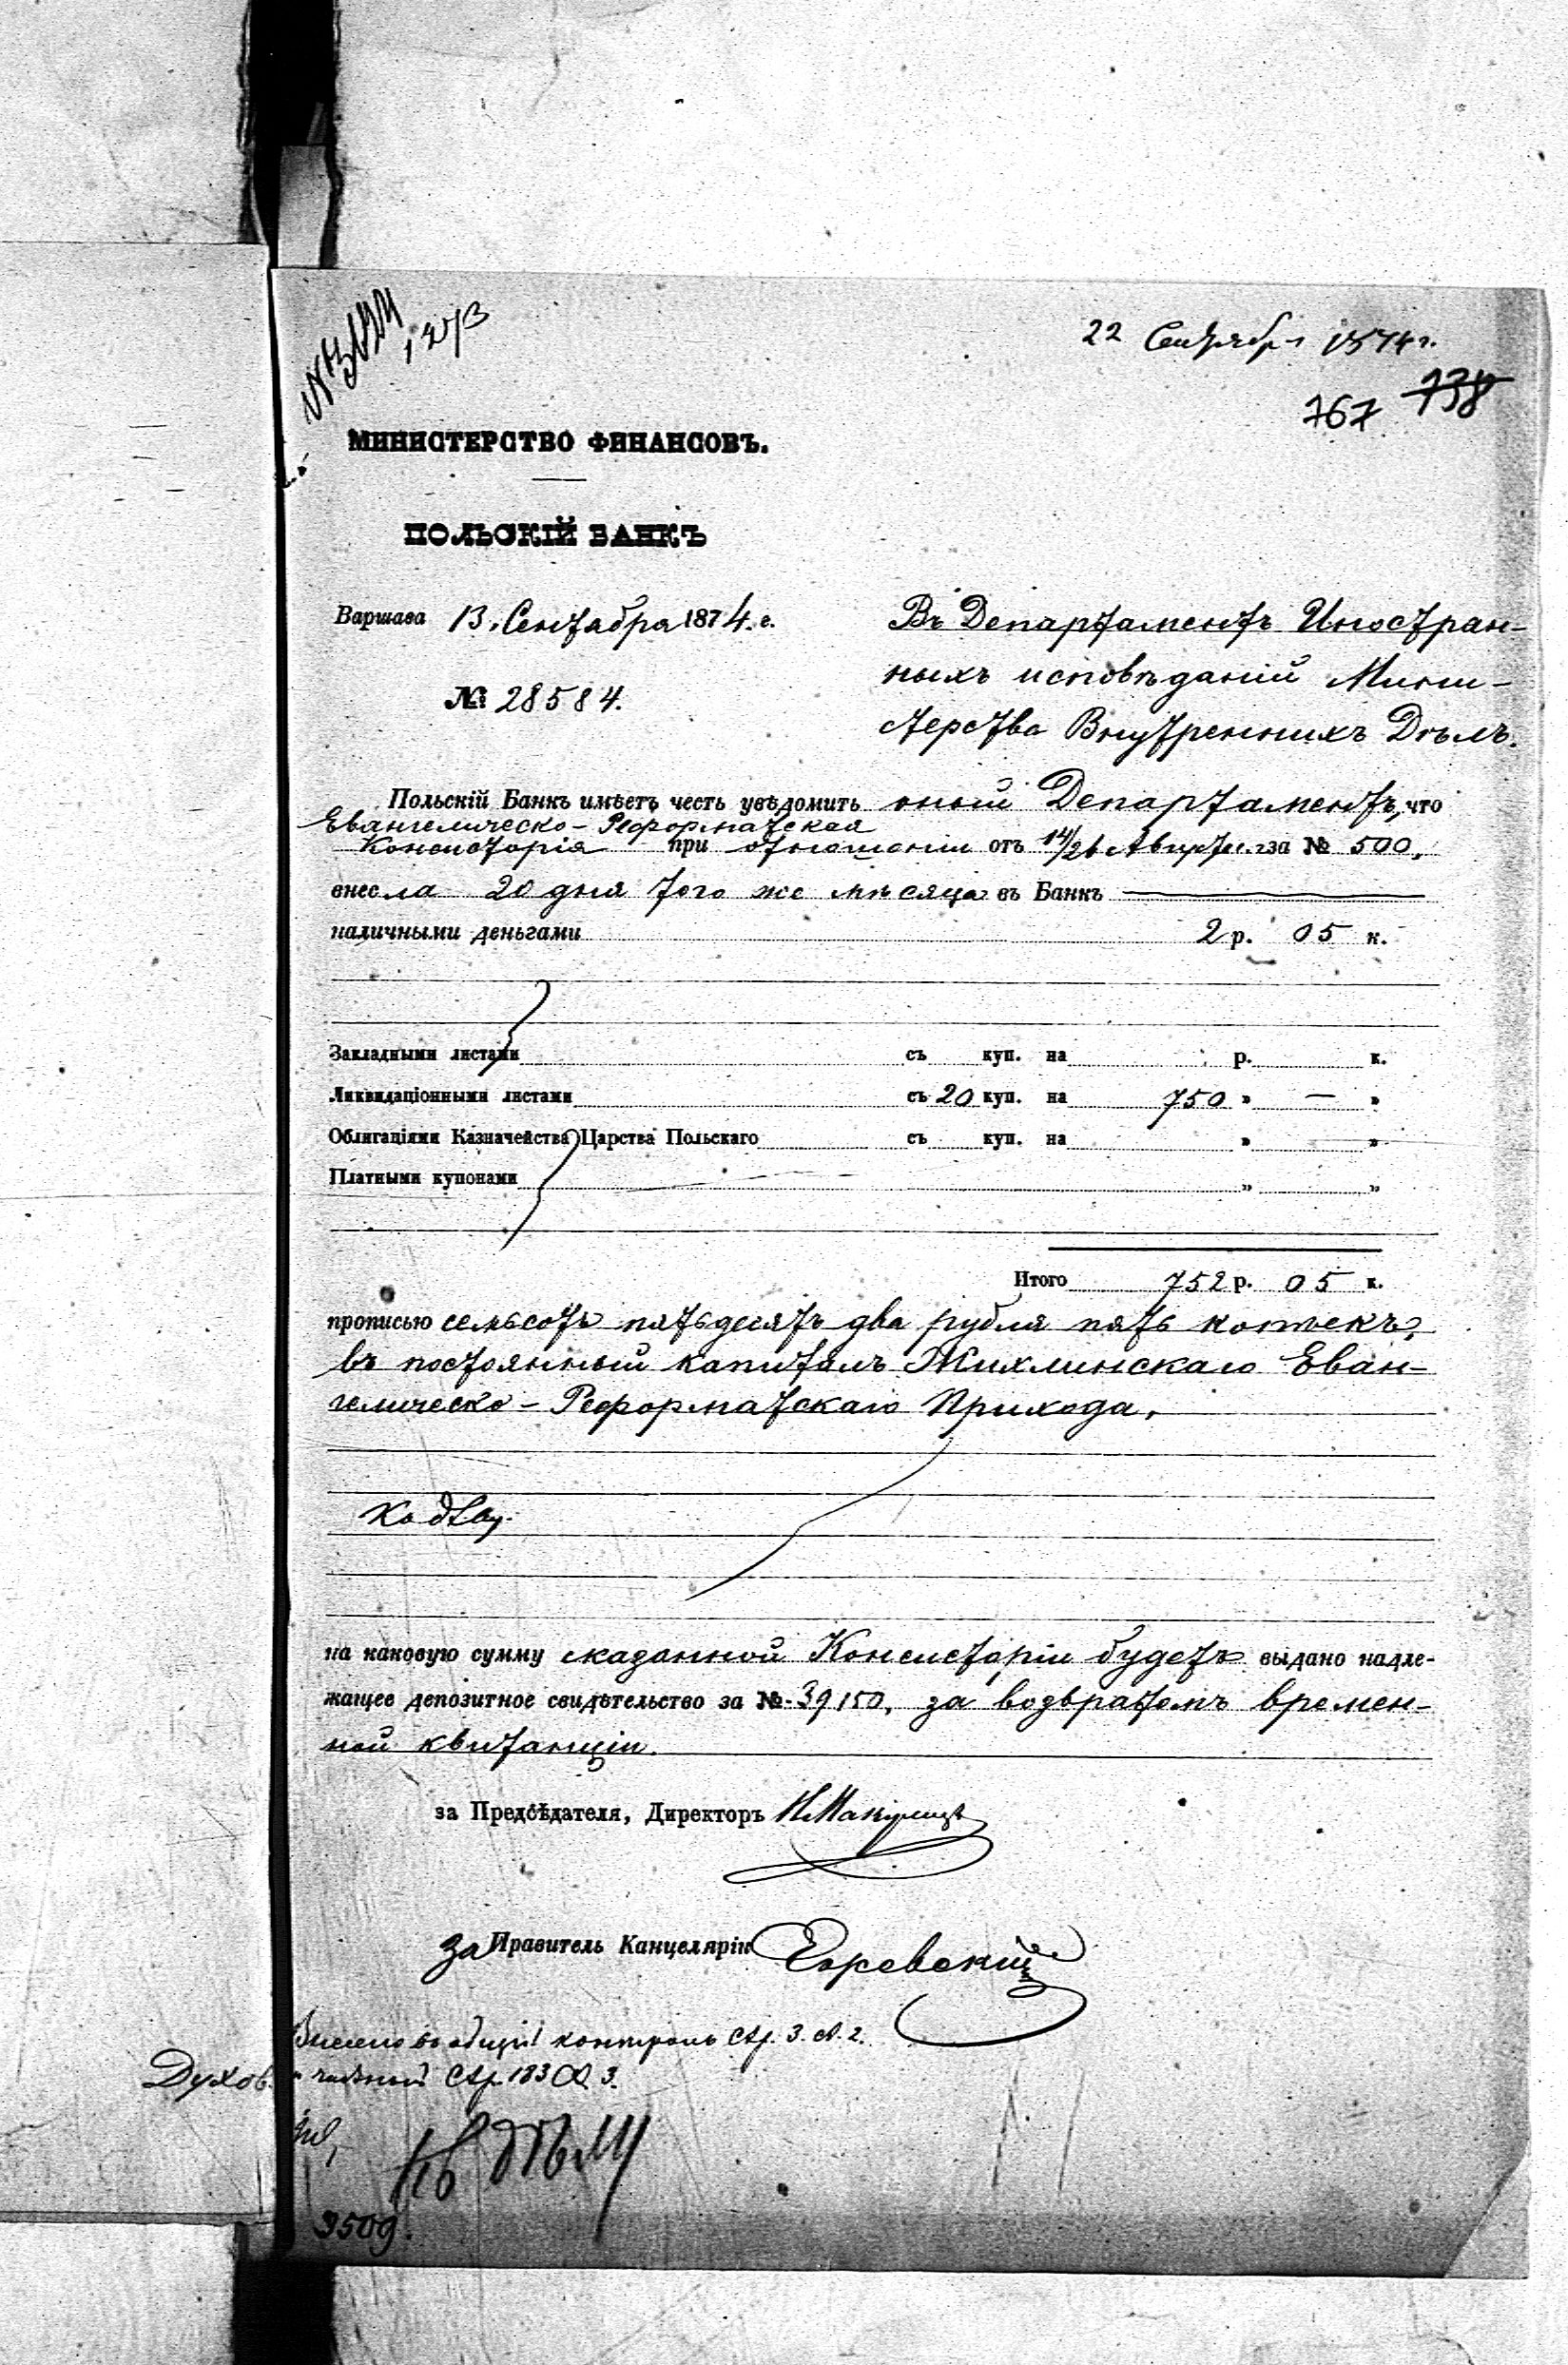 22 Сентября 1874 г.
767 738
МИНИСТЕРСТВО ФИНАНСОВЪ.
ПОЛЬСКІЙ БАНКЪ
Варшава 13 Сентября 1874 г.
№ 28584.
Въ Департаментъ Иностран-
ныхъ исповѣданій Мини-
стерства Внутреннихъ Дѣлъ.
Польскій Банкъ имѣетъ честь увѣдомить оный Департаментъ, что
Евангелическо-Реформатская
Консисторія при отношеніи отъ 14/26 Августа за № 500,
внесла 20 дня того же мѣсяца въ Банкъ
наличными деньгами 2 р. 05 к.
Закладными листами съ куп. на р. к.
Ликвидаціонными листами съ 20 куп. на 750 " — "
Облигаціями Казначейства Царства Польскаго съ куп. на " "
Платными купонами " "
Итого 752 р. 05 к.
прописью семьсотъ пятьдесятъ два рубля пять копѣекъ,
въ постоянный капиталъ Жихлинскаго Еван-
гелическо-Реформатскаго Прихода.
Къ дѣлу.
на каковую сумму сказанной Консисторіи будетъ выдано надле-
жащее депозитное свидѣтельство за № 39150, за возвратомъ времен-
ной квитанціи.
за Предсѣдателя, Директоръ
за Правитель Канцеляріи
Внесено въ общій контроль Стр. 3. № 2.
Духов. частный Стр. 183 № 3.
Къ дѣлу
3509.